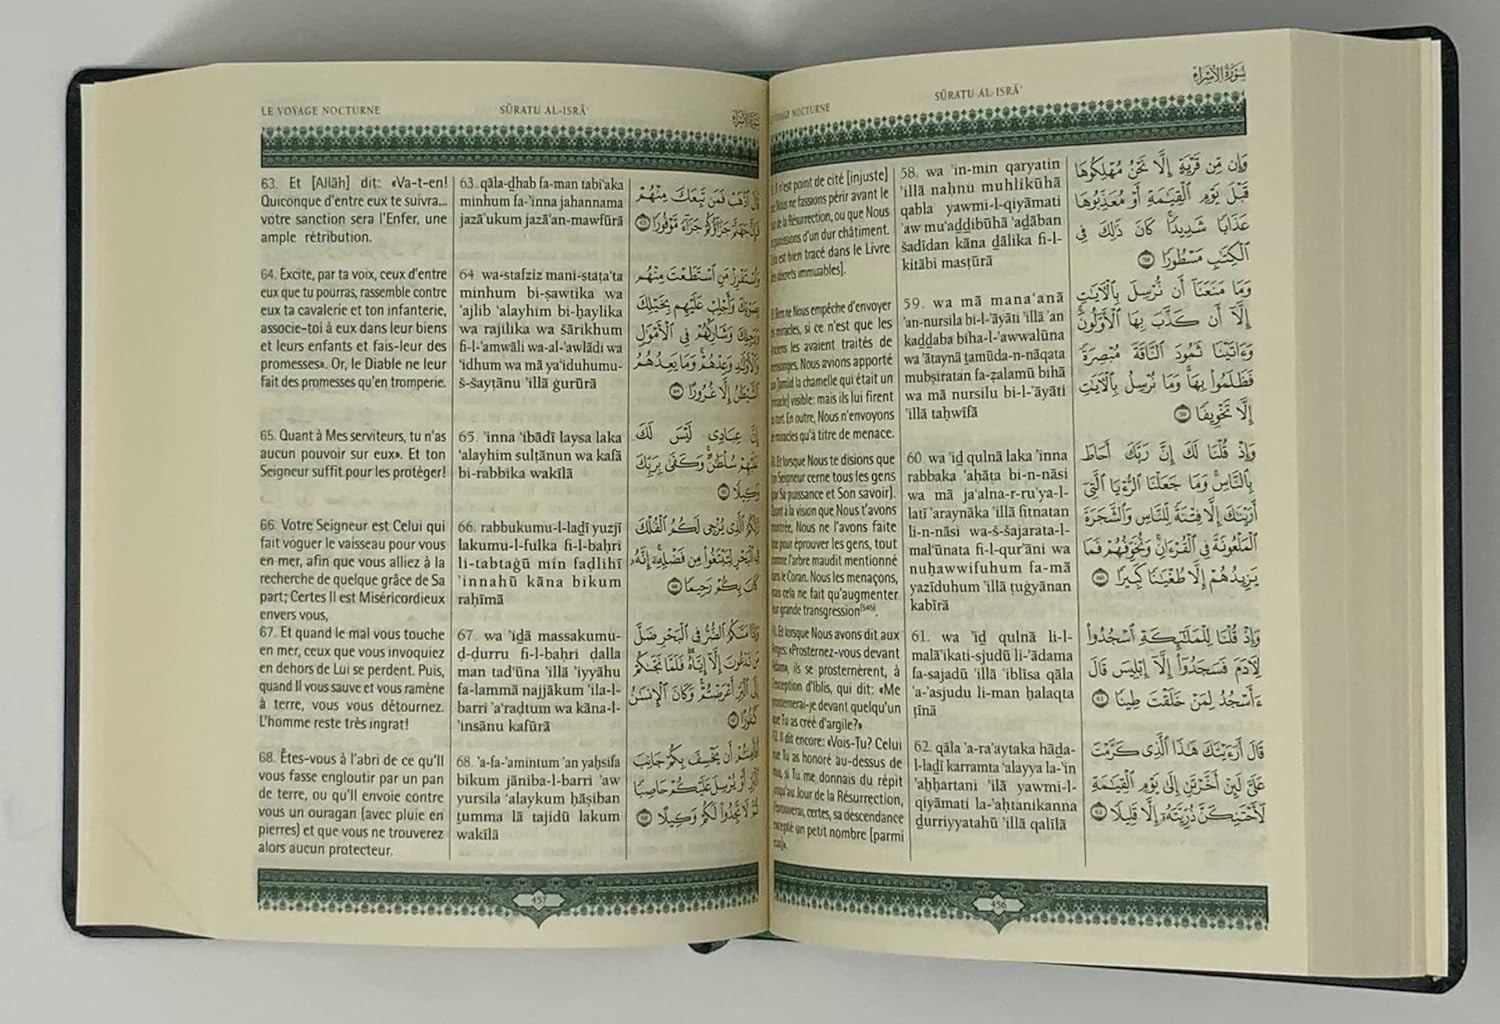 LE VOYAGE NOCTURNE
SŪRATU AL-ISRĀ'
سورة الإسراء
63. Et [Allāh] dit: «Va-t-en!
Quiconque d'entre eux te suivra...
votre sanction sera l'Enfer, une
ample rétribution.
64. Excite, par ta voix, ceux d'entre
eux que tu pourras, rassemble contre
eux ta cavalerie et ton infanterie,
associe-toi à eux dans leur biens
et leurs enfants et fais-leur des
promesses». Or, le Diable ne leur
fait des promesses qu'en tromperie.
65. Quant à Mes serviteurs, tu n'as
aucun pouvoir sur eux». Et ton
Seigneur suffit pour les protéger!
66. Votre Seigneur est Celui qui
fait voguer le vaisseau pour vous
en mer, afin que vous alliez à la
recherche de quelque grâce de Sa
part; Certes Il est Miséricordieux
envers vous,
67. Et quand le mal vous touche
en mer, ceux que vous invoquiez
en dehors de Lui se perdent. Puis,
quand Il vous sauve et vous ramène
à terre, vous vous détournez.
L'homme reste très ingrat!
68. Êtes-vous à l'abri de ce qu'Il
vous fasse engloutir par un pan
de terre, ou qu'Il envoie contre
vous un ouragan (avec pluie en
pierres) et que vous ne trouverez
alors aucun protecteur.
63. qāla-ḏhab fa-man tabi'aka
minhum fa-'inna jahannama
jazā'ukum jazā'an-mawfūrā
64 wa-stafziz mani-staṭa'ta
minhum bi-ṣawtika wa
'ajlib 'alayhim bi-ḫaylika
wa rajilika wa šārikhum
fi-l-'amwāli wa-al-'awlādi wa
'idhum wa mā ya'iduhumu-
š-šayṭānu 'illā ġurūrā
65. 'inna 'ibādī laysa laka
'alayhim sulṭānun wa kafā
bi-rabbika wakīlā
66. rabbukumu-l-laḏī yuzjī
lakumu-l-fulka fi-l-baḥri
li-tabtaġū min faḍlihī
'innahū kāna bikum
raḥīmā
67. wa 'iḏā massakumu-
ḍ-ḍurru fi-l-baḥri ḍalla
man tad'ūna 'illā 'iyyāhu
fa-lammā najjākum 'ila-l-
barri 'a'raḍtum wa kāna-l-
'insānu kafūrā
68. 'a-fa-'amintum 'an yaḫsifa
bikum jāniba-l-barri 'aw
yursila 'alaykum ḥāṣiban
ṯumma lā tajidū lakum
wakīlā
قَالَ ٱذْهَبْ فَمَن تَبِعَكَ مِنْهُمْ
فَإِنَّ جَهَنَّمَ جَزَآؤُكُمْ جَزَآءً مَّوْفُورًا ۝٦٣
وَٱسْتَفْزِزْ مَنِ ٱسْتَطَعْتَ مِنْهُم
بِصَوْتِكَ وَأَجْلِبْ عَلَيْهِم بِخَيْلِكَ
وَرَجِلِكَ وَشَارِكْهُمْ فِى ٱلْأَمْوَٰلِ
وَٱلْأَوْلَٰدِ وَعِدْهُمْ وَمَا يَعِدُهُمُ
ٱلشَّيْطَٰنُ إِلَّا غُرُورًا ۝٦٤
إِنَّ عِبَادِى لَيْسَ لَكَ
عَلَيْهِمْ سُلْطَٰنٌ وَكَفَىٰ بِرَبِّكَ
وَكِيلًا ۝٦٥
رَّبُّكُمُ ٱلَّذِى يُزْجِى لَكُمُ ٱلْفُلْكَ
فِى ٱلْبَحْرِ لِتَبْتَغُوا۟ مِن فَضْلِهِۦٓ إِنَّهُۥ
كَانَ بِكُمْ رَحِيمًا ۝٦٦
وَإِذَا مَسَّكُمُ ٱلضُّرُّ فِى ٱلْبَحْرِ ضَلَّ
مَن تَدْعُونَ إِلَّآ إِيَّاهُ فَلَمَّا نَجَّىٰكُمْ
إِلَى ٱلْبَرِّ أَعْرَضْتُمْ وَكَانَ ٱلْإِنسَٰنُ
كَفُورًا ۝٦٧
أَفَأَمِنتُمْ أَن يَخْسِفَ بِكُمْ جَانِبَ
ٱلْبَرِّ أَوْ يُرْسِلَ عَلَيْكُمْ حَاصِبًا
ثُمَّ لَا تَجِدُوا۟ لَكُمْ وَكِيلًا ۝٦٨
457
VOYAGE NOCTURNE
SŪRATU AL-ISRĀ'
سورة الإسراء
n'est point de cité [injuste]
Nous ne fassions périr avant le
de la Résurrection, ou que Nous
d'un dur châtiment.
est bien tracé dans le Livre
décrets immuables].
Rien ne Nous empêche d'envoyer
miracles, si ce n'est que les
les avaient traités de
Nous avions apporté
la chamelle qui était un
visible: mais ils lui firent
tort. En outre, Nous n'envoyons
miracles qu'à titre de menace.
Et lorsque Nous te disions que
Seigneur cerne tous les gens
Sa puissance et Son savoir].
à la vision que Nous t'avons
Nous ne l'avons faite
pour éprouver les gens, tout
l'arbre maudit mentionné
le Coran. Nous les menaçons,
cela ne fait qu'augmenter
grande transgression(545).
Et lorsque Nous avons dit aux
«Prosternez-vous devant
ils se prosternèrent, à
l'exception d'Iblis, qui dit: «Me
devant quelqu'un
Tu as créé d'argile?»
Il dit encore: «Vois-Tu? Celui
Tu as honoré au-dessus de
si Tu me donnais du répit
jusqu'au Jour de la Résurrection,
certes, sa descendance
excepté un petit nombre [parmi
58. wa 'in-min qaryatin
'illā naḥnu muhlikūhā
qabla yawmi-l-qiyāmati
'aw mu'aḏḏibūhā 'aḏāban
šadīdan kāna ḏālika fi-l-
kitābi masṭūrā
59. wa mā mana'anā
'an-nursila bi-l-'āyāti 'illā 'an
kaḏḏaba biha-l-'awwalūna
wa 'ātaynā ṯamūda-n-nāqata
mubṣiratan fa-ẓalamū bihā
wa mā nursilu bi-l-'āyāti
'illā taḫwīfā
60. wa 'iḏ qulnā laka 'inna
rabbaka 'aḥāṭa bi-n-nāsi
wa mā ja'alna-r-ru'ya-l-
latī 'araynāka 'illā fitnatan
li-n-nāsi wa-š-šajarata-l-
mal'ūnata fi-l-qur'āni wa
nuḫawwifuhum fa-mā
yazīduhum 'illā ṭuġyānan
kabīrā
61. wa 'iḏ qulnā li-l-
malā'ikati-sjudū li-'ādama
fa-sajadū 'illā 'iblīsa qāla
'a-'asjudu li-man ḫalaqta
ṭīnā
62. qāla 'a-ra'aytaka hāḏa-
l-laḏī karramta 'alayya la-'in
'aḫḫartani 'ilā yawmi-l-
qiyāmati la-'aḥtanikanna
ḏurriyyatahū 'illā qalīlā
وَإِن مِّن قَرْيَةٍ إِلَّا نَحْنُ مُهْلِكُوهَا
قَبْلَ يَوْمِ ٱلْقِيَٰمَةِ أَوْ مُعَذِّبُوهَا
عَذَابًا شَدِيدًا كَانَ ذَٰلِكَ فِى
ٱلْكِتَٰبِ مَسْطُورًا ۝٥٨
وَمَا مَنَعَنَآ أَن نُّرْسِلَ بِٱلْءَايَٰتِ
إِلَّآ أَن كَذَّبَ بِهَا ٱلْأَوَّلُونَ
وَءَاتَيْنَا ثَمُودَ ٱلنَّاقَةَ مُبْصِرَةً
فَظَلَمُوا۟ بِهَا وَمَا نُرْسِلُ بِٱلْءَايَٰتِ
إِلَّا تَخْوِيفًا ۝٥٩
وَإِذْ قُلْنَا لَكَ إِنَّ رَبَّكَ أَحَاطَ
بِٱلنَّاسِ وَمَا جَعَلْنَا ٱلرُّءْيَا ٱلَّتِىٓ
أَرَيْنَٰكَ إِلَّا فِتْنَةً لِّلنَّاسِ وَٱلشَّجَرَةَ
ٱلْمَلْعُونَةَ فِى ٱلْقُرْءَانِ وَنُخَوِّفُهُمْ فَمَا
يَزِيدُهُمْ إِلَّا طُغْيَٰنًا كَبِيرًا ۝٦٠
وَإِذْ قُلْنَا لِلْمَلَٰٓئِكَةِ ٱسْجُدُوا۟
لِءَادَمَ فَسَجَدُوٓا۟ إِلَّآ إِبْلِيسَ قَالَ
ءَأَسْجُدُ لِمَنْ خَلَقْتَ طِينًا ۝٦١
قَالَ أَرَءَيْتَكَ هَٰذَا ٱلَّذِى كَرَّمْتَ
عَلَىَّ لَئِنْ أَخَّرْتَنِ إِلَىٰ يَوْمِ ٱلْقِيَٰمَةِ
لَأَحْتَنِكَنَّ ذُرِّيَّتَهُۥٓ إِلَّا قَلِيلًا ۝٦٢
456